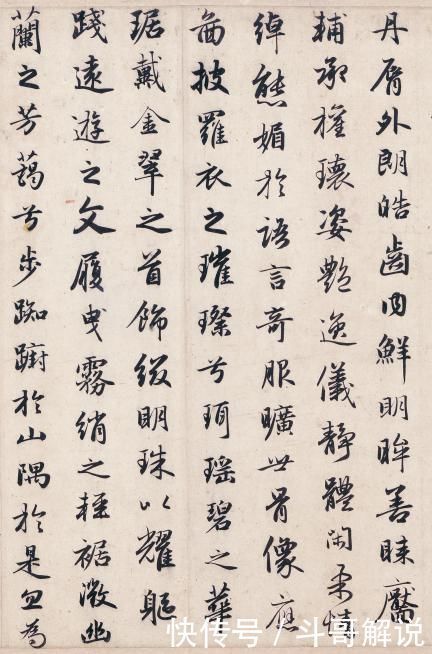 丹脣外朗皓齒内鮮明眸善睞靨
輔承權瓌姿艷逸儀靜體閑柔情
綽態媚於語言奇服曠世骨像應
啚披羅衣之璀璨兮珥瑶碧之華
琚戴金翠之首飾綴明珠以耀軀
踐遠遊之文履曳霧綃之輕裾微幽
蘭之芳藹兮步踟躕於山隅於是忽為
快传号/斗哥解说